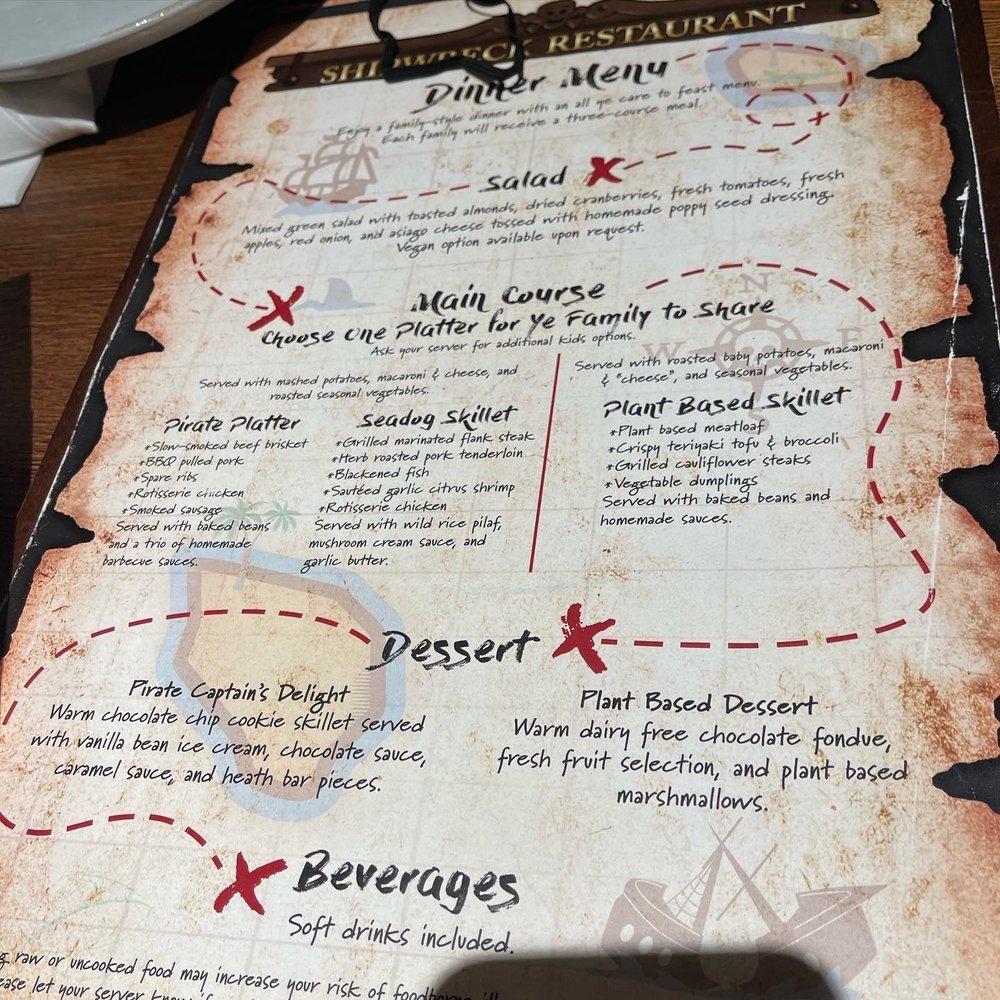 SHIPWRECK RESTAURANT
Dinner Menu
Enjoy a family-style dinner with an all ye care to feast menu.
Each family will receive a three-course meal.
Salad
Mixed green salad with toasted almonds, dried cranberries, fresh tomatoes, fresh
apples, red onion, and asiago cheese tossed with homemade poppy seed dressing.
Vegan option available upon request.
N
W
Main Course
Choose One Platter for Ye Family to Share
Ask your server for additional kids options.
Served with mashed potatoes, macaroni & cheese, and
roasted seasonal vegetables.
Pirate Platter
*Slow-smoked beef brisket
*BBQ pulled pork
*Spare ribs
*Rotisserie chicken
*Smoked sausage
Served with baked beans
and a trio of homemade
barbecue sauces.
Seadog Skillet
*Grilled marinated flank steak
*Herb roasted pork tenderloin
*Blackened fish
*Sautéed garlic citrus shrimp
*Rotisserie chicken
Served with wild rice pilaf,
mushroom cream sauce, and
garlic butter.
Served with roasted baby potatoes, macaroni
& "cheese", and seasonal vegetables.
Plant Based Skillet
*Plant based meatloaf
*Crispy teriyaki tofu & broccoli
*Grilled cauliflower steaks
*Vegetable dumplings
Served with baked beans and
homemade sauces.
Dessert
Pirate Captain's Delight
Warm chocolate chip cookie skillet served
with vanilla bean ice cream, chocolate sauce,
caramel sauce, and heath bar pieces.
Plant Based Dessert
Warm dairy free chocolate fondue,
fresh fruit selection, and plant based
marshmallows.
Beverages
Soft drinks included.
raw or uncooked food may increase your risk of
let your server